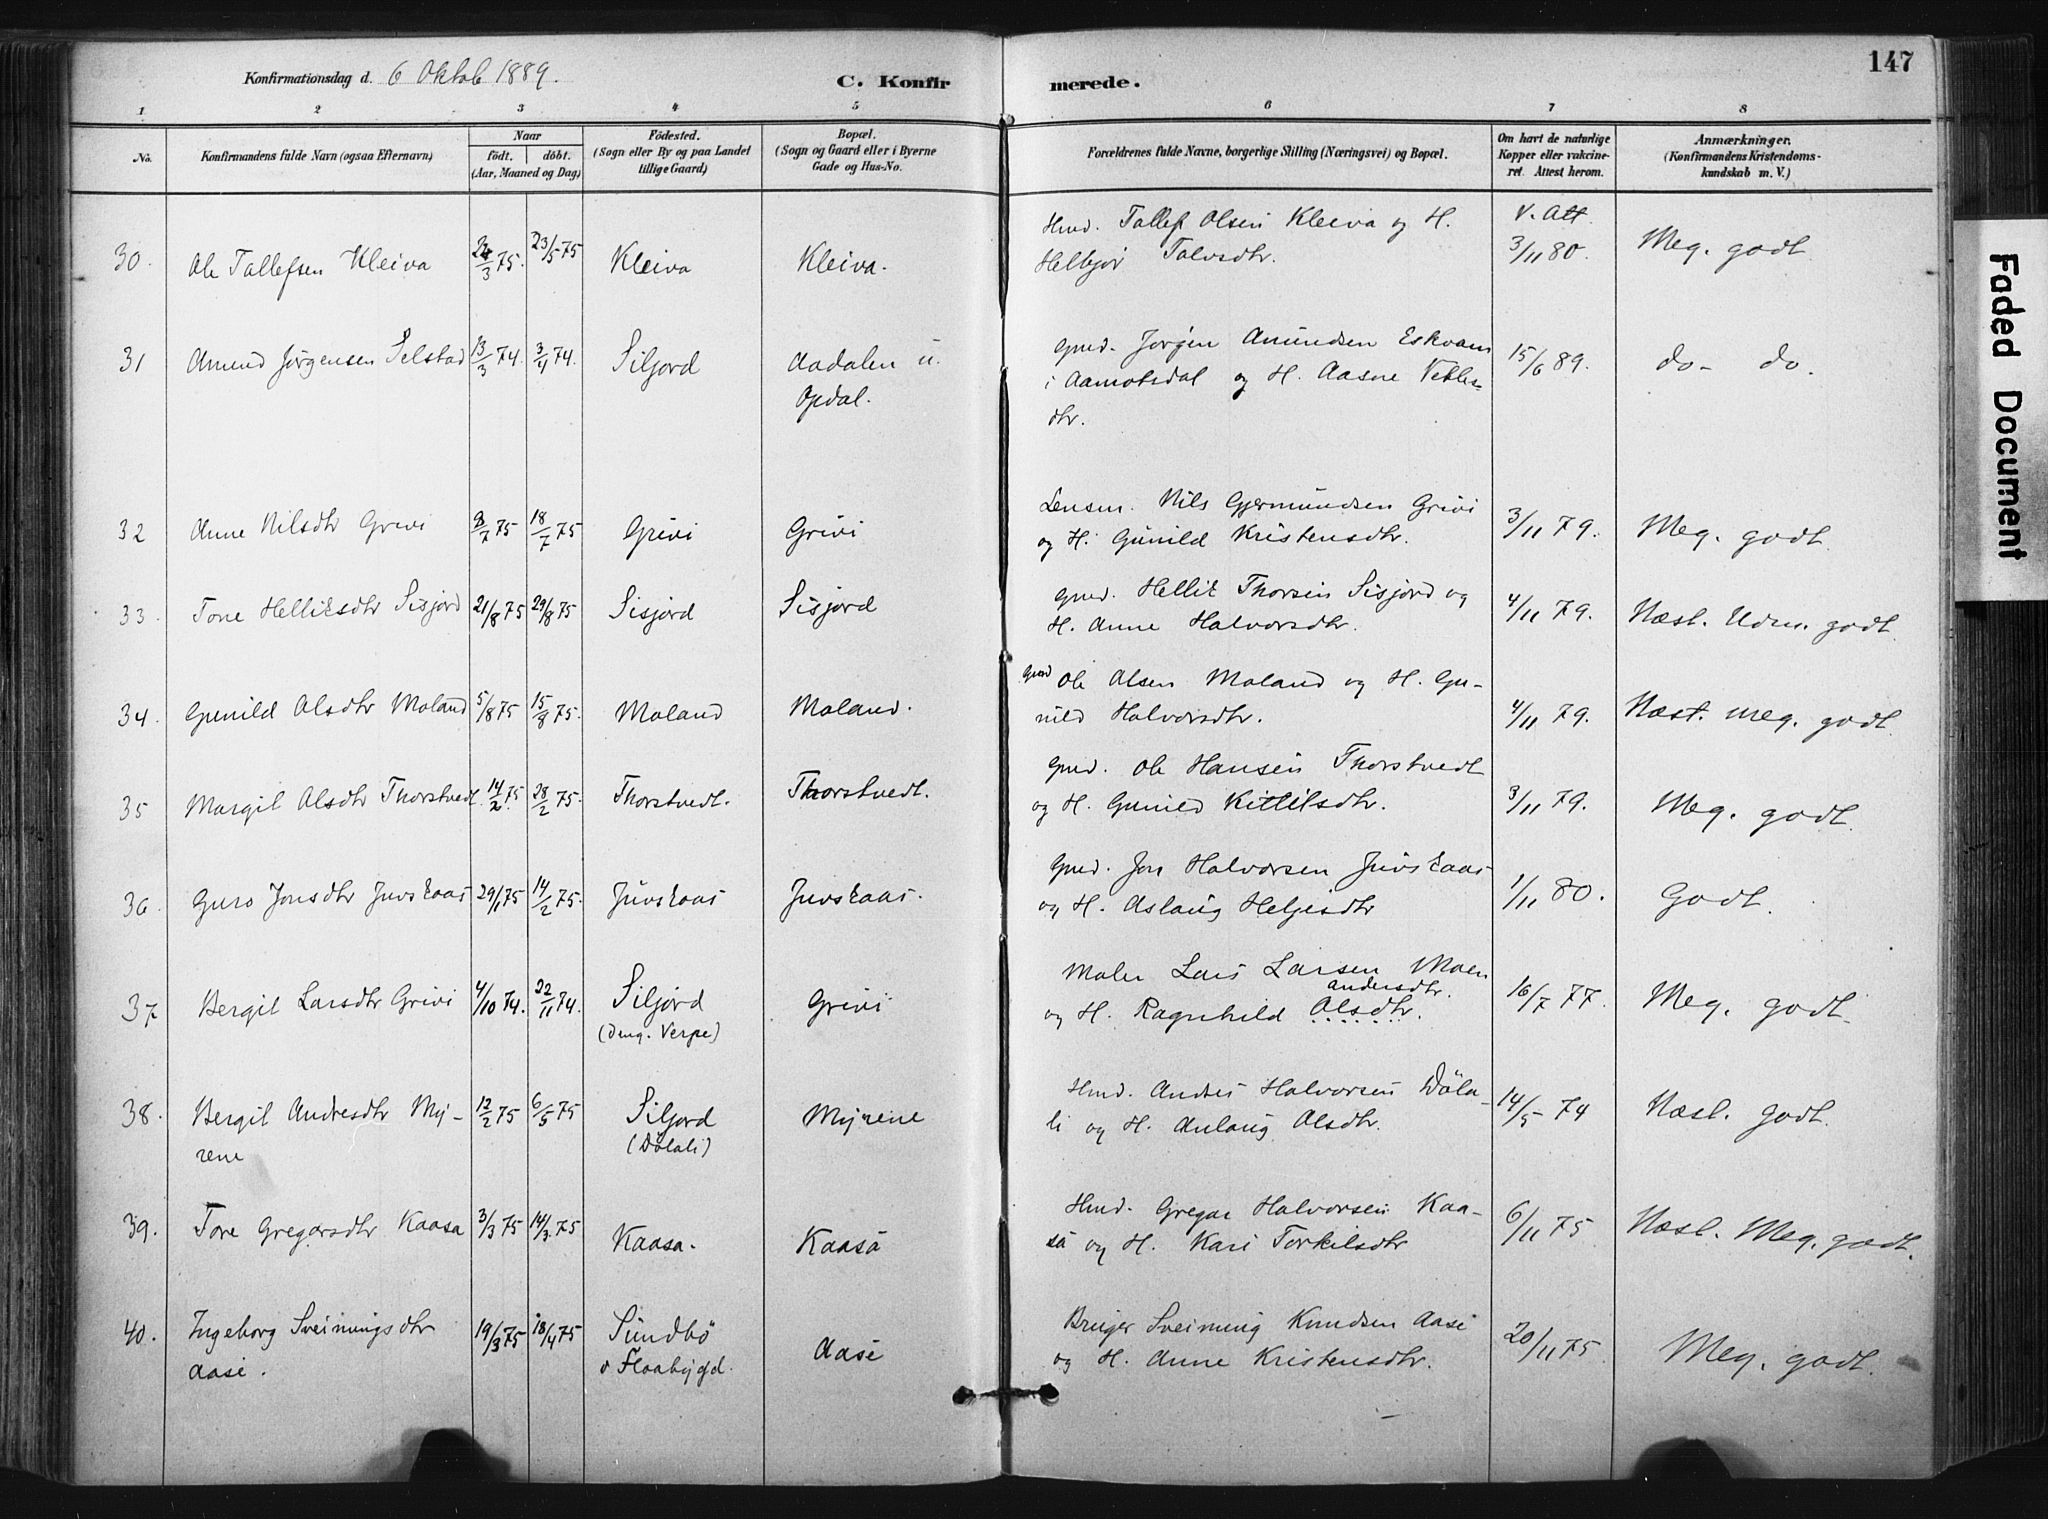 147
Konfirmationsdag d. 6 Oktob 1889.
C. Konfirmerede.
1 2 3 4 5 6 7 8
No.
Konfirmandens fulde Navn (ogsaa Efternavn)
Naar
født. døbt.
(Aar, Maaned og Dag)
Fødested.
(Sogn eller By og paa Landet
tillige Gaard)
Bopæl.
(Sogn og Gaard eller i Byerne
Gade og Hus-No.
Forældrenes fulde Navne, borgerlige Stilling (Næringsvei) og Bopæl.
Om havt de naturlige
Kopper eller vakcine-
ret. Attest herom.
Anmærkninger.
(Konfirmandens Kristendoms-
kundskab m. V.)
30. Ole Tallefsen Kleiva 24/3 75. 23/5 75 Kleiva Kleiva. Hmd. Tallef Olsen Kleiva og H.
Helbjør Talvsdtr. V. Att. 3/11 80. Meg. godt
31 Amund Jørgensen Selstad 13/3 74. 3/4 74. Siljord Aadalen u.
Opdal. Gmd. Jørgen Amundsen Eskvam
i Aamotsdal og H. Aasne Vetles-
dtr. 15/6 89. do- do.
32 Anne Nilsdtr Grivi 9/7 75 18/7 75 Grivi Grivi Lensm. Nils Gjermundsen Grivi
og H. Gunild Kristensdtr. 3/11 79. Meg. godt.
33. Tone Helliksdtr Sisjord 21/8 75 29/8 75 Sisjord Sisjord Gmd. Hellik Thorsen Sisjord og
H. Anne Halvorsdtr. 4/11 79. Næst. Udm. godt.
34. Gunild Olsdtr Moland 5/8 75 15/8 75. Moland Moland. Gmd Ole Olsen Moland og H. Gu-
nild Halvorsdtr. 4/11 79. Næst. meg. godt.
35 Margit Olsdtr Thorstvedt. 14/2 75 28/2 75. Thorstvedt. Thorstvedt. Gmd. Ole Hansen Thorstvedt
og H. Gunild Kittilsdtr. 3/11 79. Meg. godt.
36. Guro Jonsdtr Juvskaas 29/1 75 14/2 75. Juvskaas Juvskaas. Gmd. Jon Halvorsen Juvskaas
og H. Aslaug Helgesdtr 1/11 80. Godt.
37 Bergit Larsdtr Grivi 4/10 74. 22/11 74. Siljord
(Verpe) Grivi Maler Lars Larsen Moen
andersdtr.
og H. Ragnhild Olsdtr. 16/7 77. Meg. godt.
38. Bergit Andresdtr My-
rene 12/2 75 6/5 75 Siljord
(Dølali) Myrene Hmd. Andres Halvorsen Døla-
li og H. Anlaug Olsdtr. 14/5 74 Næst. godt.
39. Tone Gregarsdtr Kaasa 3/3 75 14/3 75 Kaasa. Kaasa Hmd. Gregar Halvorsen Kaa-
sa og H. Kari Torkilsdtr 6/11 75 Næst. Meg. godt.
40. Ingeborg Sveinungsdtr
Aase. 19/3 75 18/4 75 Sundbø
v Flaabygd. Aase Bruger Sveinung Knudsen Aase
og H. Anne Kristensdtr. 20/11 75. Meg. godt.
Faded Document